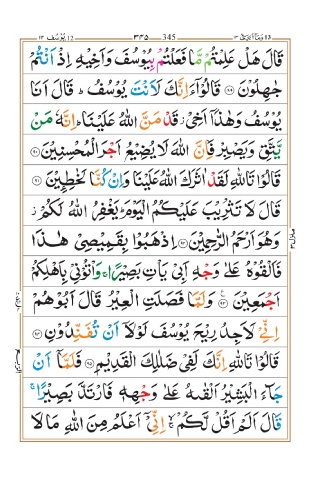 ١٢ يُوسُف ١٢ ٣٣٥ 345 وَمَاۤ اُبَرِّئُ ١٣
قَالَ هَلْ عَلِمْتُمْ مَّا فَعَلْتُمْ بِيُوْسُفَ وَاَخِيْهِ اِذْ اَنْتُمْ
جٰهِلُوْنَ ۝۸۹ قَالُوْۤا ءَاِنَّكَ لَاَنْتَ يُوْسُفُ ؕ قَالَ اَنَا
يُوْسُفُ وَهٰذَاۤ اَخِيْ ؗ قَدْ مَنَّ اللّٰهُ عَلَيْنَا ؕ اِنَّهٗ مَنْ
يَّتَّقِ وَيَصْبِرْ فَاِنَّ اللّٰهَ لَا يُضِيْعُ اَجْرَ الْمُحْسِنِيْنَ ۝۹۰
قَالُوْا تَاللّٰهِ لَقَدْ اٰثَرَكَ اللّٰهُ عَلَيْنَا وَاِنْ كُنَّا لَخٰطِـِٕيْنَ ۝۹۱
قَالَ لَا تَثْرِيْبَ عَلَيْكُمُ الْيَوْمَ ؕ يَغْفِرُ اللّٰهُ لَكُمْ ؗ
وَهُوَ اَرْحَمُ الرّٰحِمِيْنَ ۝۹۲ اِذْهَبُوْا بِقَمِيْصِيْ هٰذَا
فَاَلْقُوْهُ عَلٰى وَجْهِ اَبِيْ يَاْتِ بَصِيْرًا ۚ وَاْتُوْنِيْ بِاَهْلِكُمْ
اَجْمَعِيْنَ ۝۹۳ وَلَمَّا فَصَلَتِ الْعِيْرُ قَالَ اَبُوْهُمْ
اِنِّيْ لَاَجِدُ رِيْحَ يُوْسُفَ لَوْلَاۤ اَنْ تُفَنِّدُوْنِ ۝۹۴
قَالُوْا تَاللّٰهِ اِنَّكَ لَفِيْ ضَلٰلِكَ الْقَدِيْمِ ۝۹۵ فَلَمَّاۤ اَنْ
جَآءَ الْبَشِيْرُ اَلْقٰىهُ عَلٰى وَجْهِهٖ فَارْتَدَّ بَصِيْرًا ۚ
قَالَ اَلَمْ اَقُلْ لَّكُمْ ۚ اِنِّيْۤ اَعْلَمُ مِنَ اللّٰهِ مَا لَا